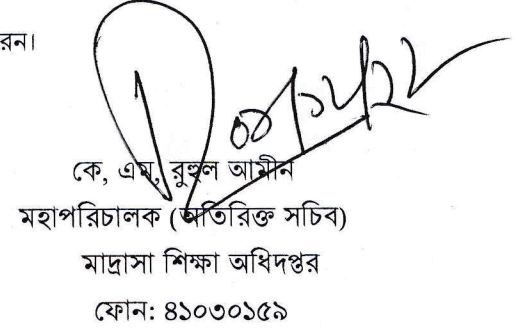 রন।
কে, এম, রুহুল আমীন
মহাপরিচালক (অতিরিক্ত সচিব)
মাদ্রাসা শিক্ষা অধিদপ্তর
ফোন: ৪১০৩০১৫৯